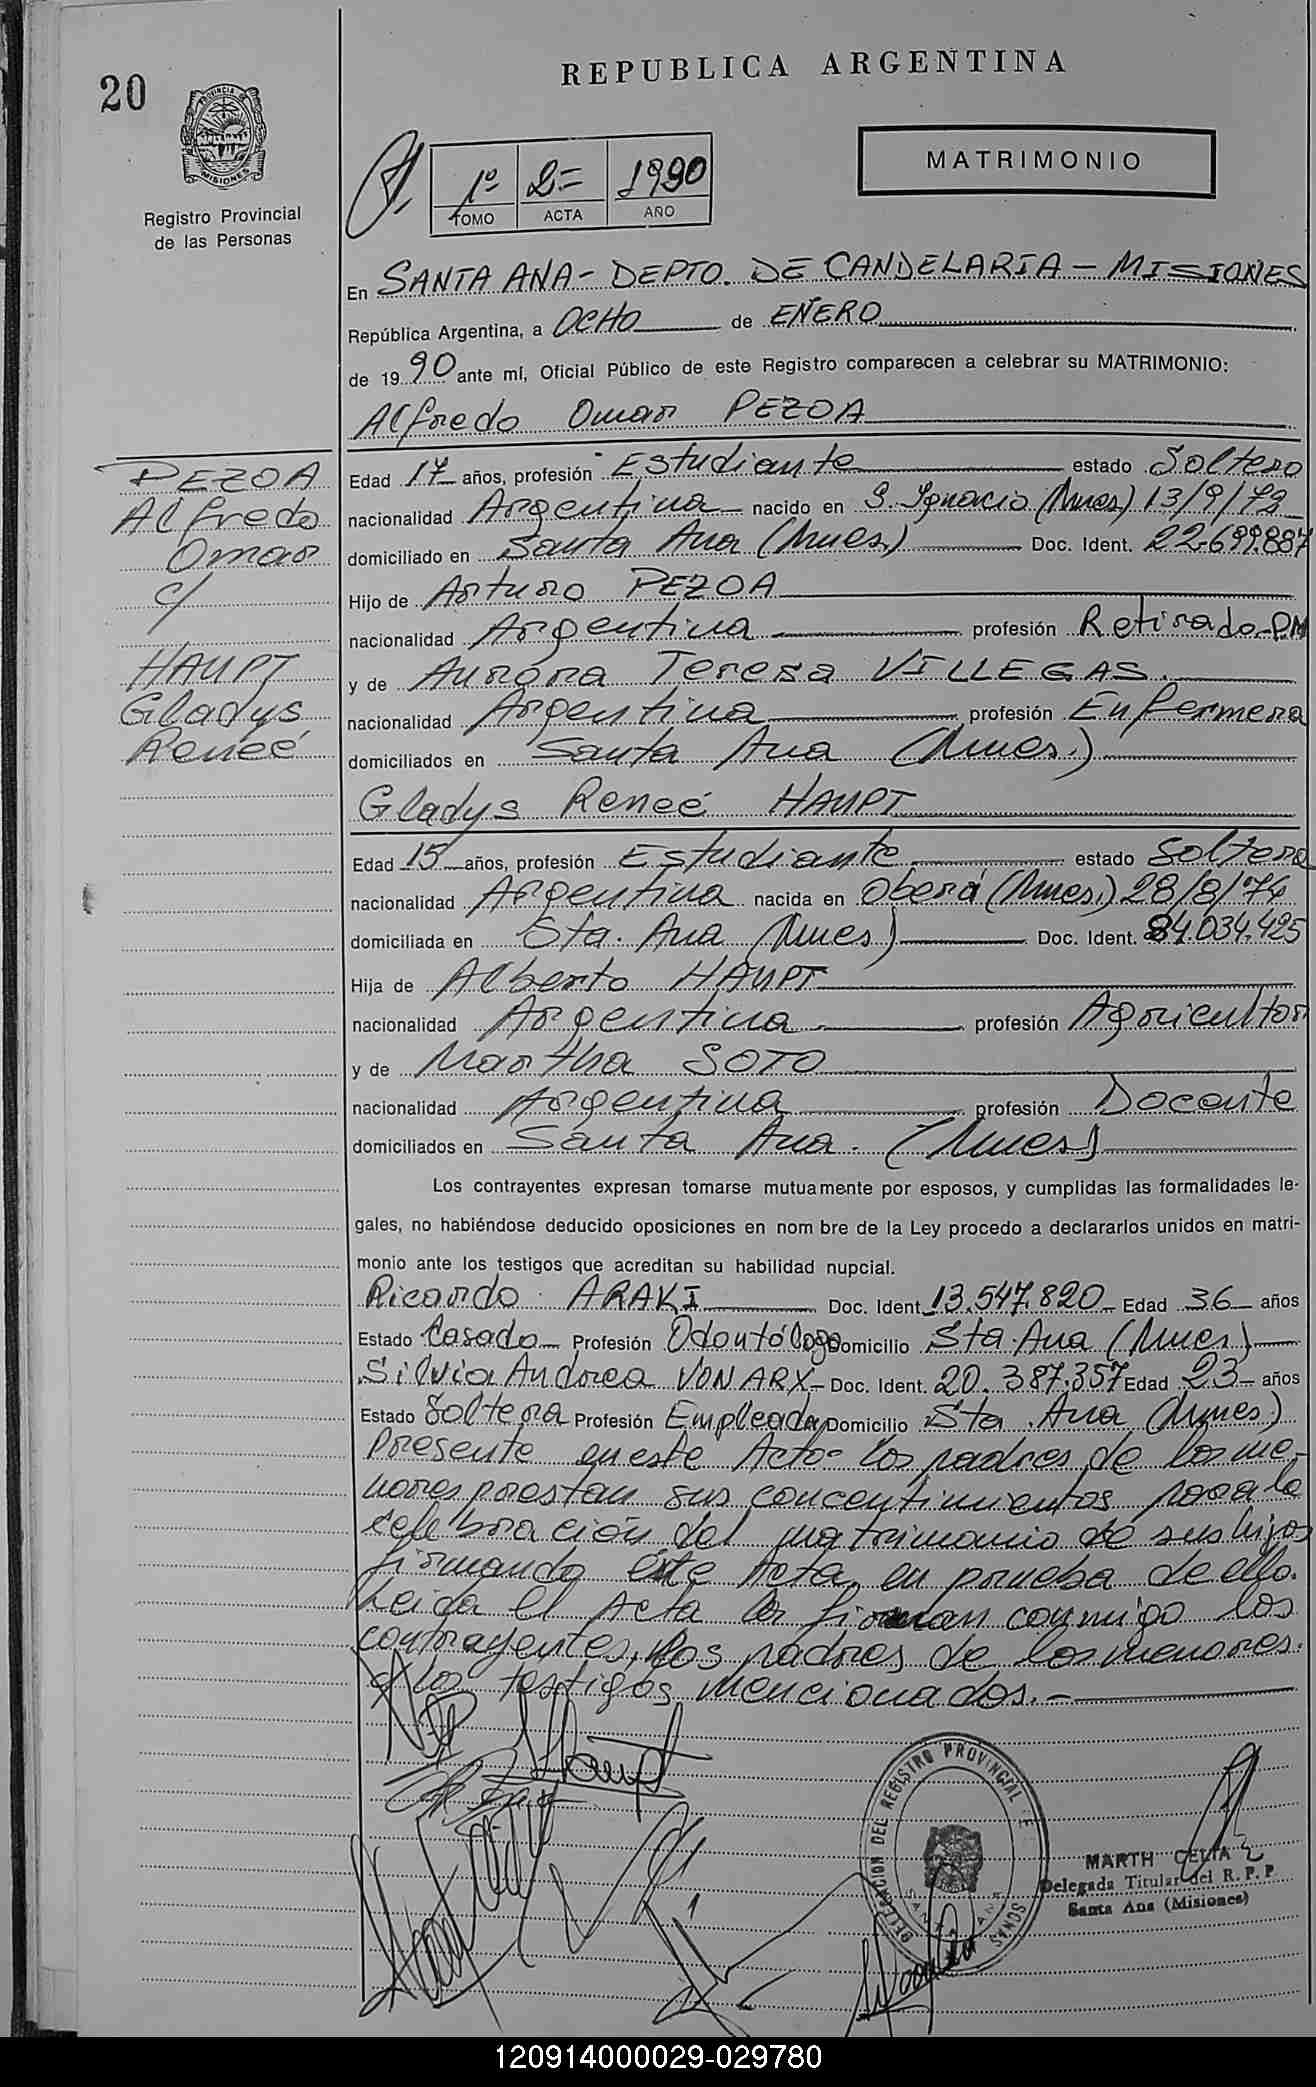 20
REPUBLICA ARGENTINA
PROVINCIA DE
MISIONES
Registro Provincial
de las Personas
1º 2= 1990
TOMO ACTA AÑO
MATRIMONIO
En SANTA ANA - DEPTO. DE CANDELARIA - MISIONES
República Argentina, a OCHO de ENERO
de 1990 ante mí, Oficial Público de este Registro comparecen a celebrar su MATRIMONIO:
Alfredo Omar PEZOA
PEZOA
Alfredo
Omar
c/
HAUPT
Gladys
Reneé
Edad 17 años, profesión Estudiante estado Soltero
nacionalidad Argentina nacido en S. Ignacio (Mnes) 13/9/72
domiciliado en Santa Ana (Mnes.) Doc. Ident. 22.699.887
Hijo de Arturo PEZOA
nacionalidad Argentina profesión Retirado-P.M
y de Aurora Teresa VILLEGAS.
nacionalidad Argentina profesión Enfermera
domiciliados en Santa Ana (Mnes.)
Gladys Reneé HAUPT
Edad 15 años, profesión Estudiante estado Soltera
nacionalidad Argentina nacida en Oberá (Mnes.) 28/8/74
domiciliada en Sta. Ana (Mnes) Doc. Ident. 84.034.425
Hija de Alberto HAUPT
nacionalidad Argentina profesión Agricultor
y de Martha SOTO
nacionalidad Argentina profesión Docente
domiciliados en Santa Ana. (Mnes)
Los contrayentes expresan tomarse mutuamente por esposos, y cumplidas las formalidades le-
gales, no habiéndose deducido oposiciones en nom bre de la Ley procedo a declararlos unidos en matri-
monio ante los testigos que acreditan su habilidad nupcial.
Ricardo ARAKI Doc. Ident. 13.547.820 Edad 36 años
Estado Casado Profesión Odontólogo Domicilio Sta. Ana (Mnes)
Silvia Andrea VON ARX - Doc. Ident. 20.387.357 Edad 23 años
Estado Soltera Profesión Empleada Domicilio Sta. Ana (Mnes)
Presente en este Acto= los padres de los me-
nores prestan sus concentimientos para la
celebración del matrimonio de sus hijos
firmando éste Acta, en prueba de ello.
Leida el Acta la firman conmigo los
contrayentes, los padres de los menores.
y los testigos mencionados. -
Haupt
DELEGACION DEL REGISTRO PROVINCIAL DE
SANTA ANA
MARTH CELIA
Delegada Titular del R. P. P.
Santa Ana (Misiones)
120914000029-029780